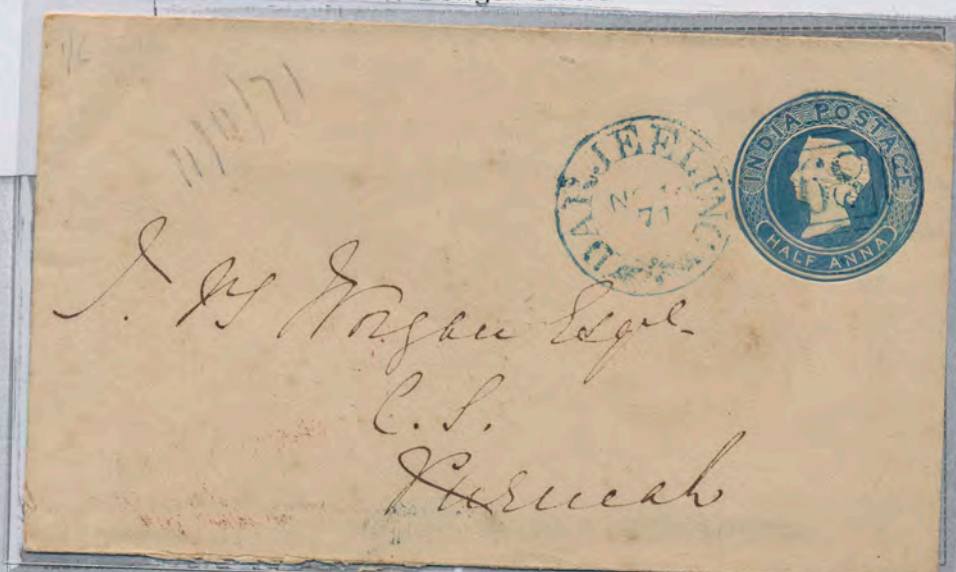 1/6
11/11/71
DARJEELING
71
INDIA POSTAGE
HALF ANNA
J. Worgan Esqre
C. S.
Purneah